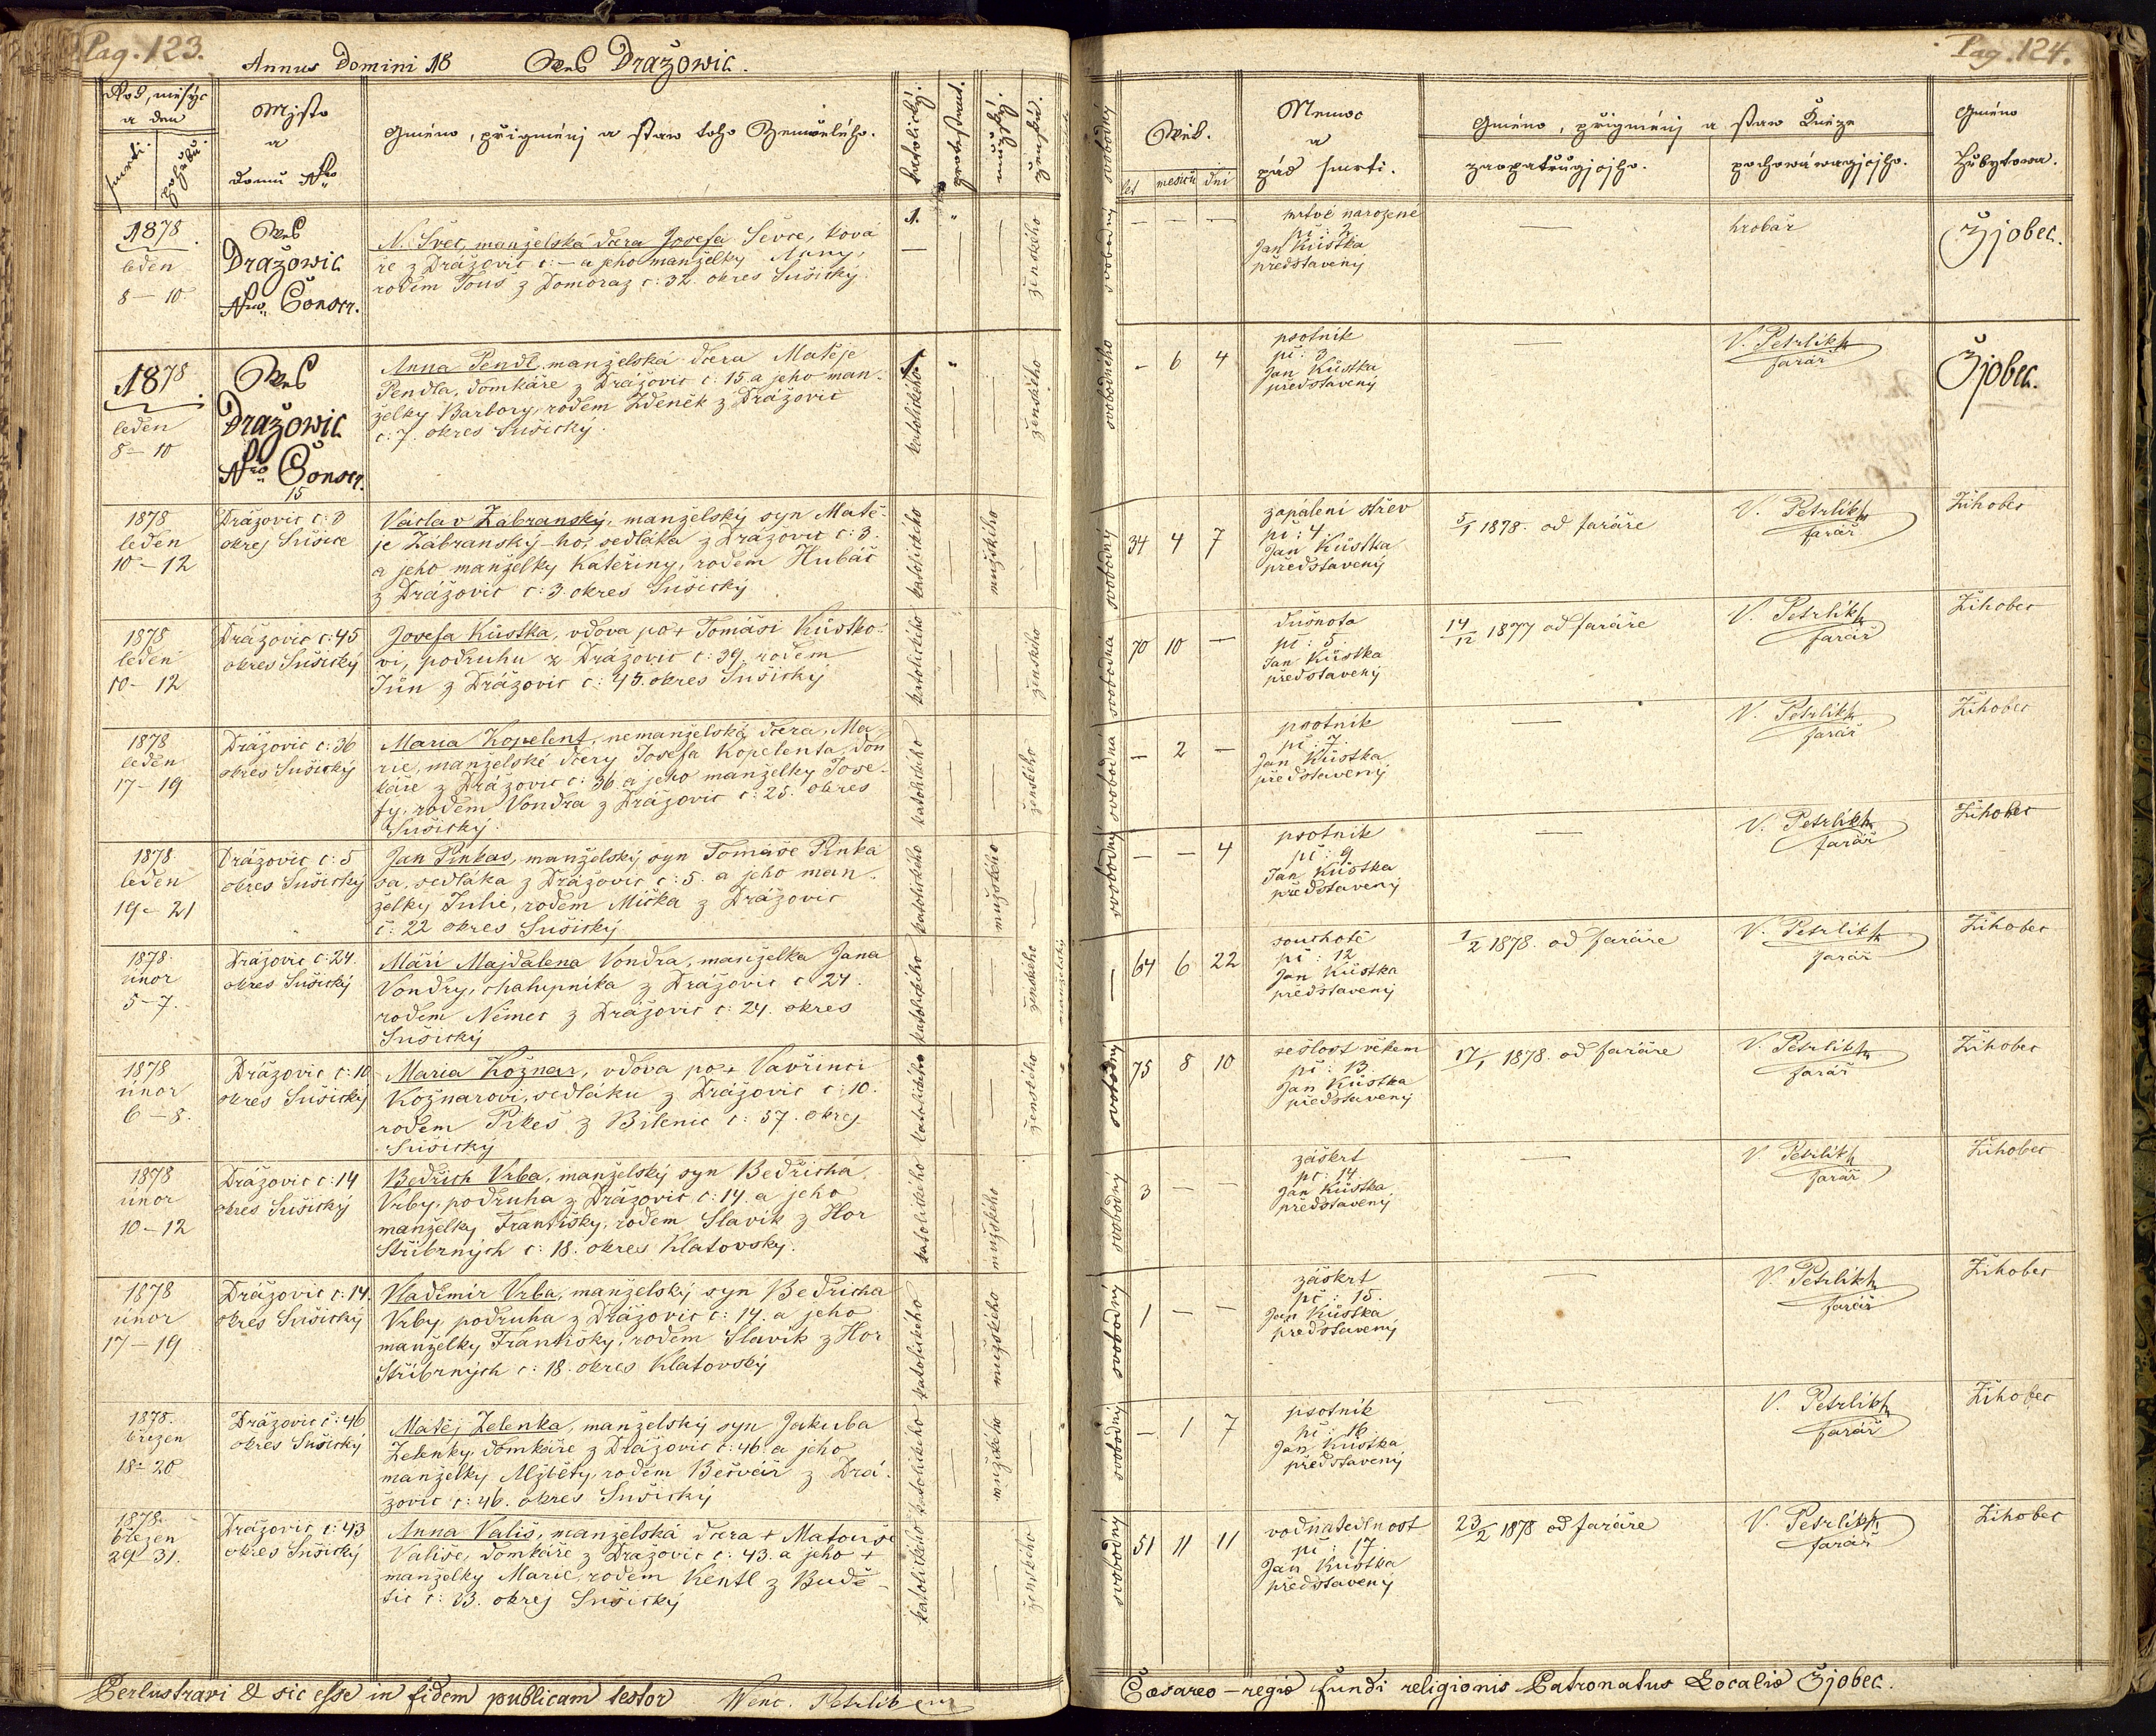 Pag. 123.
Annus Domini 18 Wes Dražowic.
Rok, měsýc a den
smrti. pohřbu.
Mjsto a domu Nro
Gméno, přigménj a staw toho Zemřelého.
katolický. protestant. mužský. ženská.
1878 leden 8 – 10.
Wes Dražowic Nro Conscr.
N. Švec, manželská dcera Josefa Ševce, ková
ře z Drážovic č: – a jeho manželky Anny,
rodem Touš z Domoraz č: 32. okres Sušický.
1. ženského
1878 leden 8 – 10
Wes Dražowic Nro Conscr. 15
Anna Pendl, manželská dcera Matěje
Pendla, domkáře z Drážovic č: 15. a jeho man-
želky Barbory, rodem Zdeněk z Drážovic
č: 7. okres Sušický.
1. katolického ženského
1878 leden 10 – 12
Drážovic č: 3 okres Sušice
Václav Zábranský, manželský syn Matě-
je Zábranský-ho, sedláka z Drážovic č: 3.
a jeho manželky Kateřiny, rodem Hubáč
z Drážovic č: 3. okres Sušický
katolického mužského
1878 leden 10 – 12
Drážovic č: 45 okres Sušický
Josefa Kůstka, vdova po + Tomáši Kůstko-
vi, podruhu z Drážovic č: 39. rodem
Jůn z Drážovic č: 45. okres Sušický
katolického ženského
1878 leden 17 – 19
Drážovic č: 36 okres Sušický
Maria Kopelent, nemanželská dcera, Ma-
rie, manželské dcery Josefa Kopelenta, dom
káře z Drážovic č: 36. a jeho manželky Jose-
fy, rodem Vondra z Drážovic č: 25. okres
Sušický.
katolického ženského
1878 leden 19 – 21
Drážovic č: 5 okres Sušický
Jan Pinkas, manželský syn Tomáše Pinka
sa, sedláka z Drážovic č: 5. a jeho man-
želky Julie, rodem Mička z Drážovic
č: 22 okres Sušický
katolického mužského
1878 únor 5 – 7.
Drážovic č: 24. okres Sušický
Máří Majdalena Vondra, manželka Jana
Vondry, chalupníka z Drážovic č 24.
rodem Němec z Drážovic č: 24. okres
Sušický
katolického ženského manželský
1878 únor 6 – 8.
Drážovic č: 10 okres Sušický
Maria Kožnar, vdova po + Vavřinci
Kožnarovi, sedláku z Drážovic č: 10.
rodem Pikeš z Bilenic č: 37. okres
Sušický
katolického ženského
1878 únor 10 – 12
Drážovic č: 14 okres Sušický
Bedřich Vrba, manželský syn Bedřicha
Vrby, podruha z Drážovic č: 14. a jeho
manželky Františky, rodem Slavík z Hor
Stříbrných č: 18. okres Klatovský.
katolického mužského
1878 únor 17 – 19
Drážovic č: 14. okres Sušický
Vladimír Vrba, manželský syn Bedřicha
Vrby, podruha z Drážovic č: 14. a jeho
manželky Františky, rodem Slavík z Hor
Stříbrných č: 18. okres Klatovský
katolického mužského
1878. březen 18 – 20
Drážovic č: 46 okres Sušický
Matěj Zelenka, manželský syn Jakuba
Zelenky, domkáře z Drážovic č: 46. a jeho
manželky Alžběty, rodem Bečvář z Drá-
žovic č: 46. okres Sušický
katolického mužského
1878. březen 29 31.
Drážovic č: 43 okres Sušický
Anna Vališ, manželská dcera + Matouše
Vališe, domkáře z Drážovic č: 43. a jeho +
manželky Marie, rodem Kentl z Budě-
tic č: 33. okres Sušický
katolického ženského
Perlustravi & sic esse in fidem publicam testor Wenc. Petrlik
Pag. 124.
Wěk.
let měsiců dni
Nemoc a pád smrti.
Gméno, přigménj a staw Kněze
zaopatřugjcýho. pochowáwagjcýho.
Gméno Hřbytowa.
– – –
mrtvě narozené
pč: 2
Jan Kůstka
představený
hrobař
Žjobec.
svobodného – 6 4
psotník
pč: 3
Jan Kůstka
představený
V. Petrlikh
farář
Žjobec.
svobodný 34 4 7
zapálení střev
pč: 4.
Jan Kůstka
představený
5/1 1878. od faráře
V. Petrlikh
farář
Žihobec
svobodná 70 10 –
dušnota
pč: 5.
Jan Kůstka
představený
14/12 1877 od faráře
V. Petrlikh
farář
Žihobec
svobodná – 2 –
psotník
pč: 7.
Jan Kůstka
představený
V. Petrlikh
farář
Žihobec
svobodný – – 4
psotník
pč: 9
Jan Kůstka
představený
V. Petrlikh
farář
Žihobec
– 64 6 22
souchotě
pč: 12
Jan Kůstka
představený
1/2 1878. od faráře
V. Petrlikh
farář
Žihobec
svobodný 75 8 10
sešlost věkem
pč: 13.
Jan Kůstka
představený
17/1 1878. od faráře
V. Petrlikh
farář
Žihobec
svobodný 3 – –
záškrt
pč: 14
Jan Kůstka
představený
V Petrlikh
farář
Žihobec
svobodný 1 – –
záškrt
pč: 15.
Jan Kůstka
představený
V. Petrlikh
farář
Žihobec
svobodný – 1 7
psotník
pč: 16
Jan Kůstka
představený
V. Petrlikh
farář
Žihobec
svobodný 51 11 11
vodnatedlnost
pč: 17.
Jan Kůstka
představený
23/2 1878 od faráře
V. Petrlikh
farář
Žihobec
Cæsareo – regio fundi religionis Patronatus Localis Žjobec.